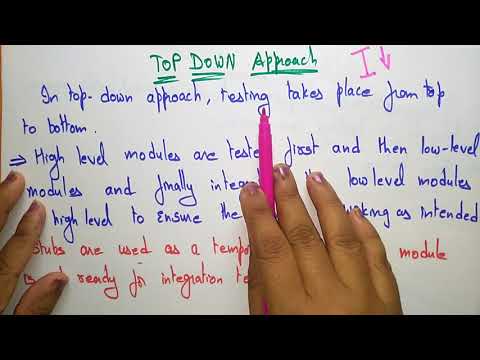 TOP DOWN Approach I↓
In top-down approach, testing takes place from top
to bottom.
⇒ High level modules are teste first and then low-level
modules and finally integ low level modules
high level to ensure the king as intended
stubs are used as a tempo module
is ready for integration te